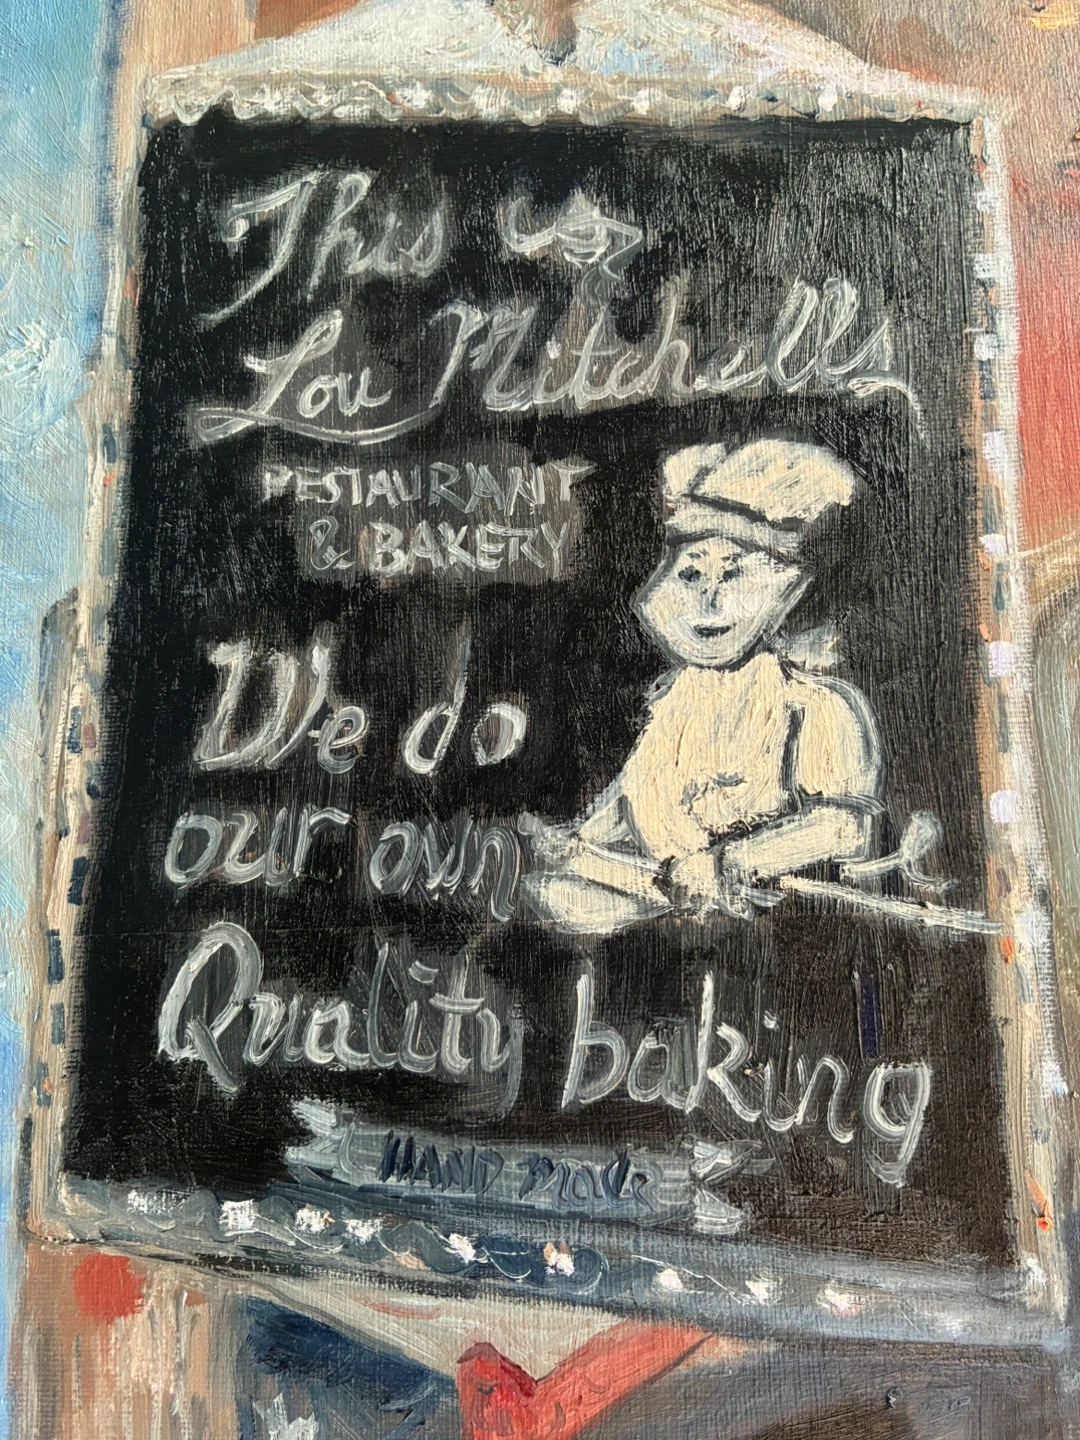 This is
Lou Mitchells
RESTAURANT
& BAKERY
We do
our own
Quality baking
HAND MADE